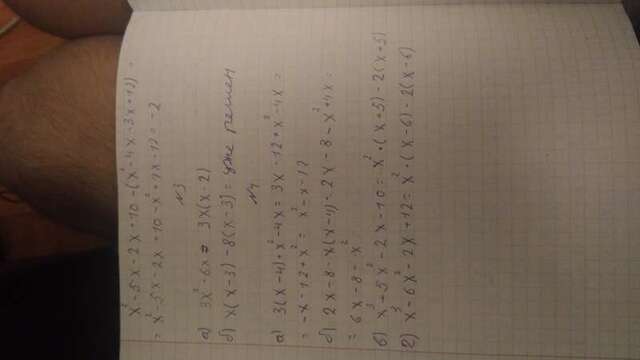 x²-5x-2x+10-(x²-4x-3x+12)=
=x²-5x-2x+10-x²+7x-12=-2
№3
а) 3x²-6x= 3x(x-2)
б) x(x-3)-8(x-3)= уже решен
№4
а) 3(x-4)+x²-4x=3x-12+x²-4x=
=-x-12+x²= x²-x-12
б) 2x-8-x(x-4)=2x-8-x²+4x=
=6x-8-x²
в) x³+5x²-2x-10=x²·(x+5)-2(x+5)
г) x³-6x²-2x+12=x²·(x-6)-2(x-6)